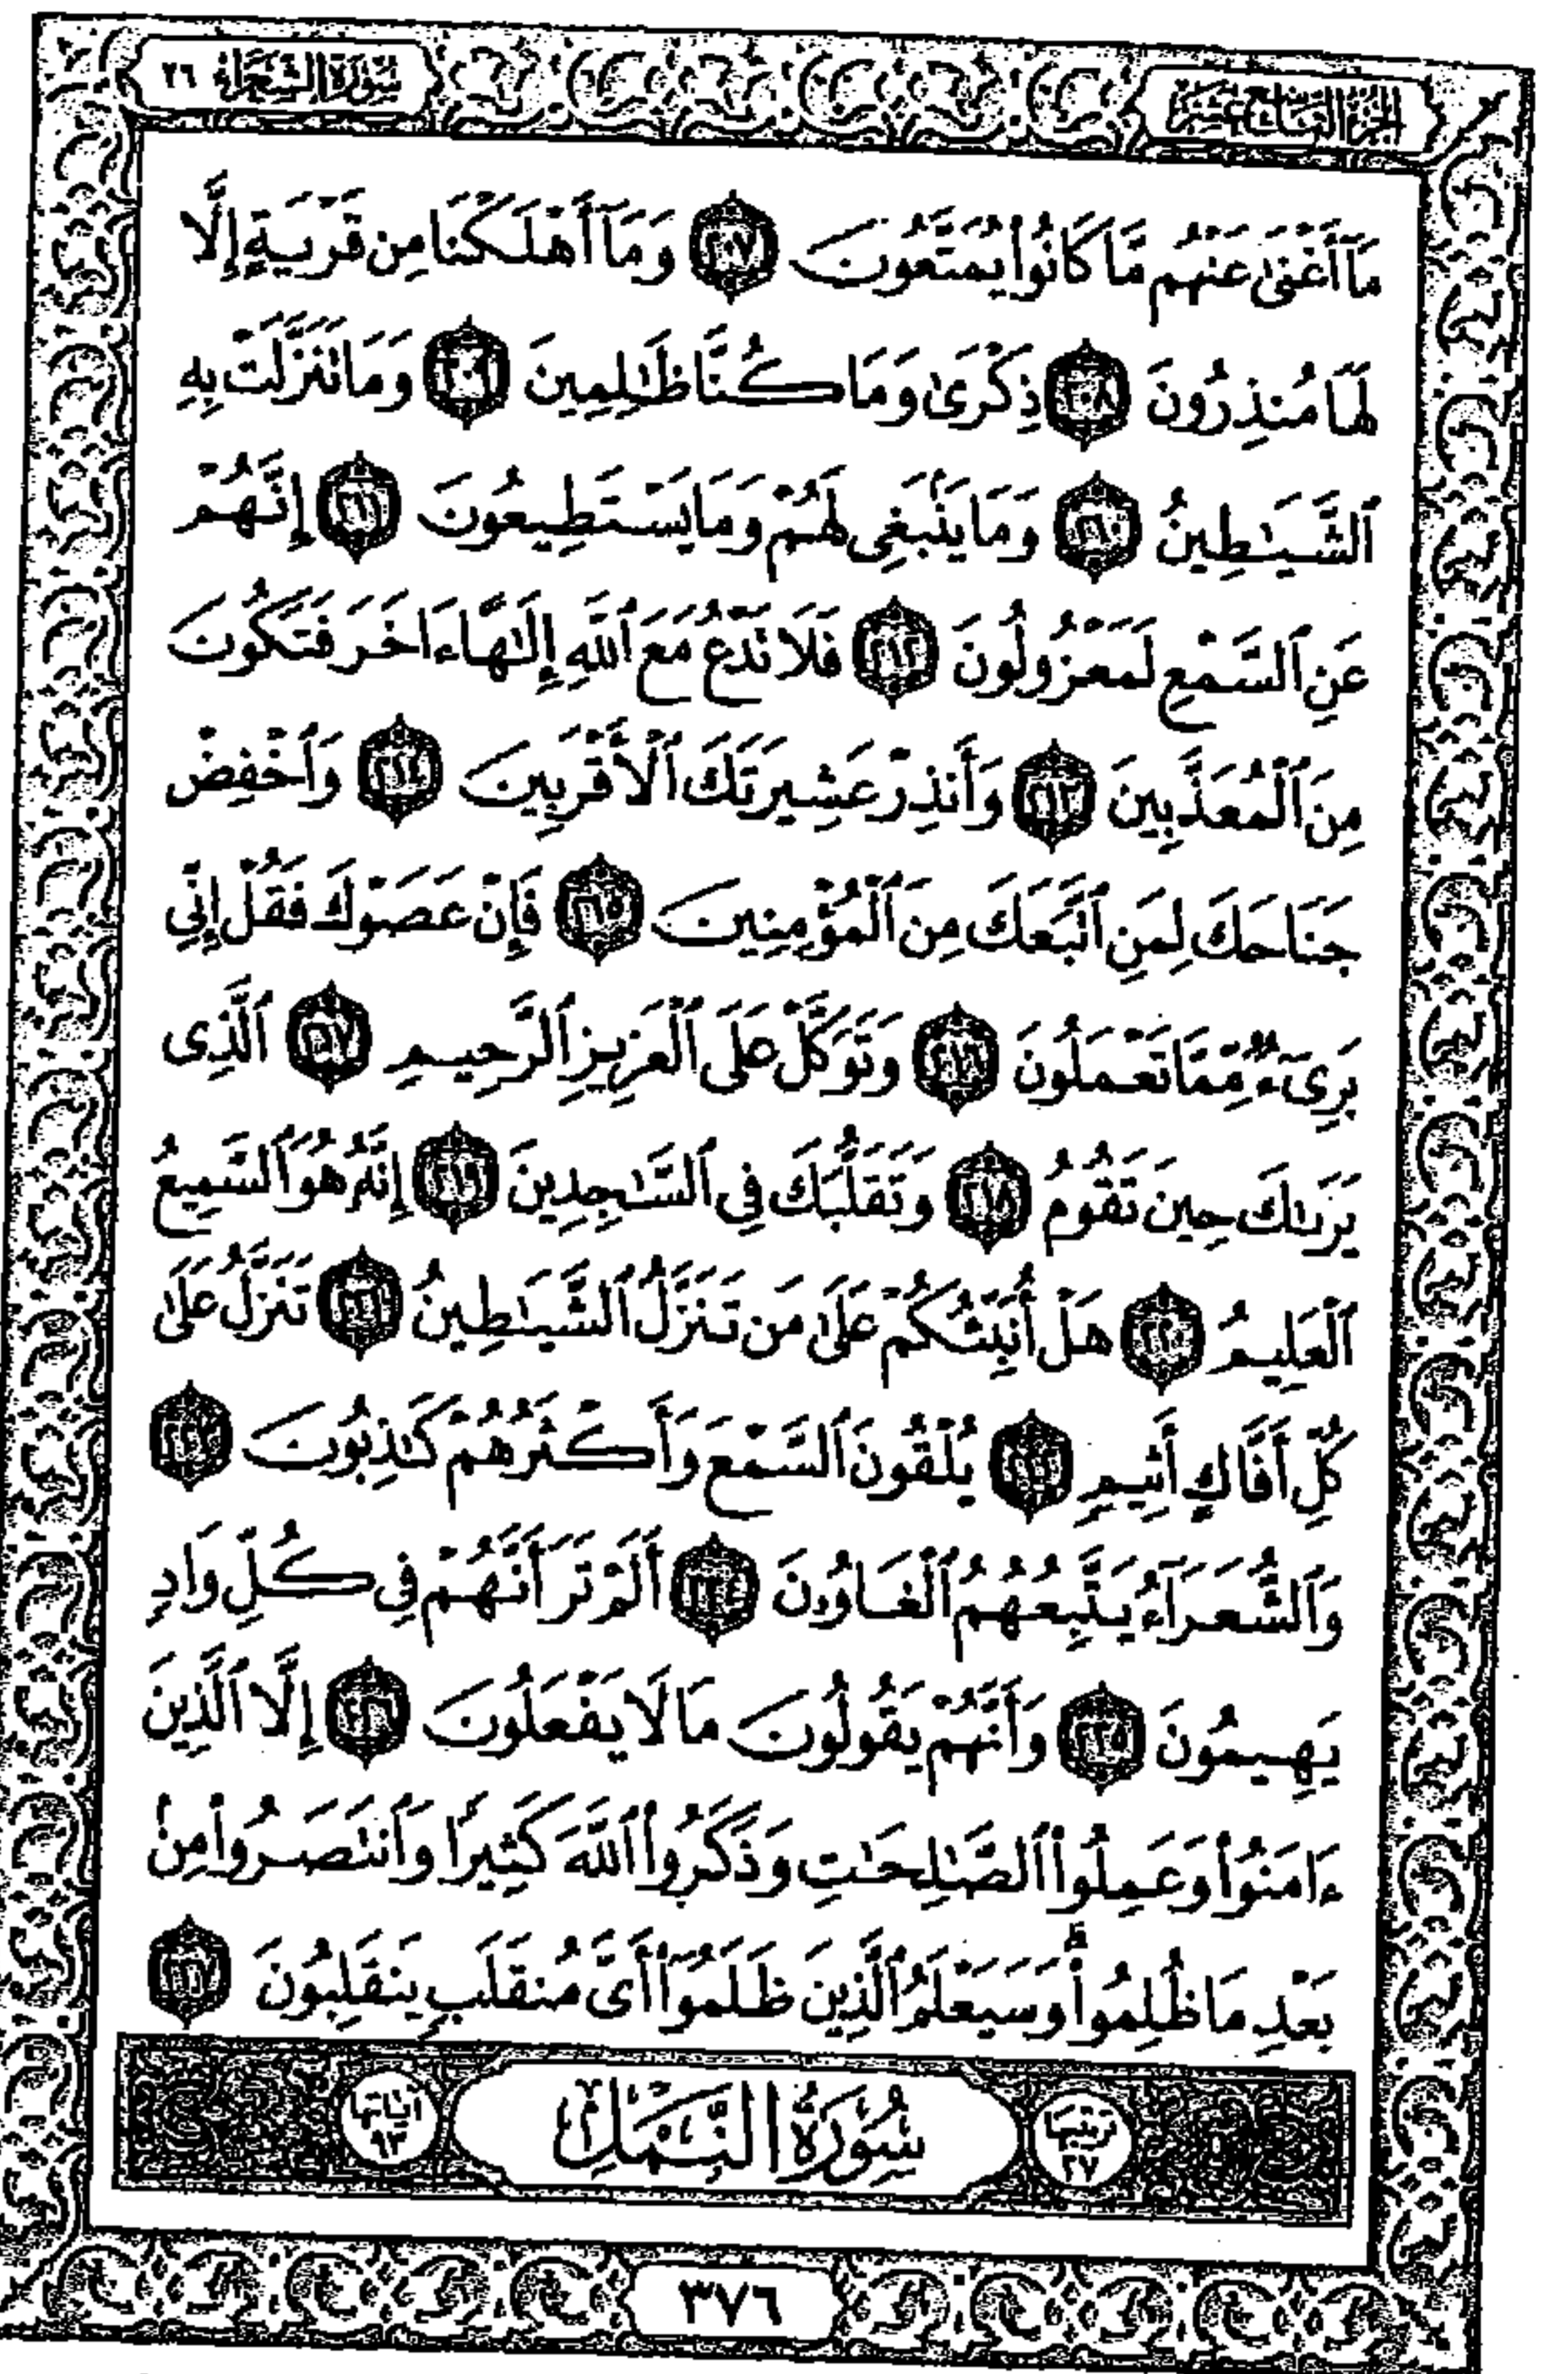 الجزء التاسع عشر
سورة الشعراء ٢٦
مَآ أَغْنَىٰ عَنْهُم مَّا كَانُوا۟ يُمَتَّعُونَ ٢٠٧ وَمَآ أَهْلَكْنَا مِن قَرْيَةٍ إِلَّا
لَهَا مُنذِرُونَ ٢٠٨ ذِكْرَىٰ وَمَا كُنَّا ظَـٰلِمِينَ ٢٠٩ وَمَا تَنَزَّلَتْ بِهِ
ٱلشَّيَـٰطِينُ ٢١٠ وَمَا يَنۢبَغِى لَهُمْ وَمَا يَسْتَطِيعُونَ ٢١١ إِنَّهُمْ
عَنِ ٱلسَّمْعِ لَمَعْزُولُونَ ٢١٢ فَلَا تَدْعُ مَعَ ٱللَّهِ إِلَـٰهًا ءَاخَرَ فَتَكُونَ
مِنَ ٱلْمُعَذَّبِينَ ٢١٣ وَأَنذِرْ عَشِيرَتَكَ ٱلْأَقْرَبِينَ ٢١٤ وَٱخْفِضْ
جَنَاحَكَ لِمَنِ ٱتَّبَعَكَ مِنَ ٱلْمُؤْمِنِينَ ٢١٥ فَإِنْ عَصَوْكَ فَقُلْ إِنِّى
بَرِىٓءٌ مِّمَّا تَعْمَلُونَ ٢١٦ وَتَوَكَّلْ عَلَى ٱلْعَزِيزِ ٱلرَّحِيمِ ٢١٧ ٱلَّذِى
يَرَىٰكَ حِينَ تَقُومُ ٢١٨ وَتَقَلُّبَكَ فِى ٱلسَّـٰجِدِينَ ٢١٩ إِنَّهُۥ هُوَ ٱلسَّمِيعُ
ٱلْعَلِيمُ ٢٢٠ هَلْ أُنَبِّئُكُمْ عَلَىٰ مَن تَنَزَّلُ ٱلشَّيَـٰطِينُ ٢٢١ تَنَزَّلُ عَلَىٰ
كُلِّ أَفَّاكٍ أَثِيمٍ ٢٢٢ يُلْقُونَ ٱلسَّمْعَ وَأَكْثَرُهُمْ كَـٰذِبُونَ ٢٢٣
وَٱلشُّعَرَآءُ يَتَّبِعُهُمُ ٱلْغَاوُۥنَ ٢٢٤ أَلَمْ تَرَ أَنَّهُمْ فِى كُلِّ وَادٍ
يَهِيمُونَ ٢٢٥ وَأَنَّهُمْ يَقُولُونَ مَا لَا يَفْعَلُونَ ٢٢٦ إِلَّا ٱلَّذِينَ
ءَامَنُوا۟ وَعَمِلُوا۟ ٱلصَّـٰلِحَـٰتِ وَذَكَرُوا۟ ٱللَّهَ كَثِيرًا وَٱنتَصَرُوا۟ مِنۢ
بَعْدِ مَا ظُلِمُوا۟ ۗ وَسَيَعْلَمُ ٱلَّذِينَ ظَلَمُوٓا۟ أَىَّ مُنقَلَبٍ يَنقَلِبُونَ ٢٢٧
ترتيبها ٢٧ سُورَةُ النَّمْلِ آياتها ٩٣
٣٧٦